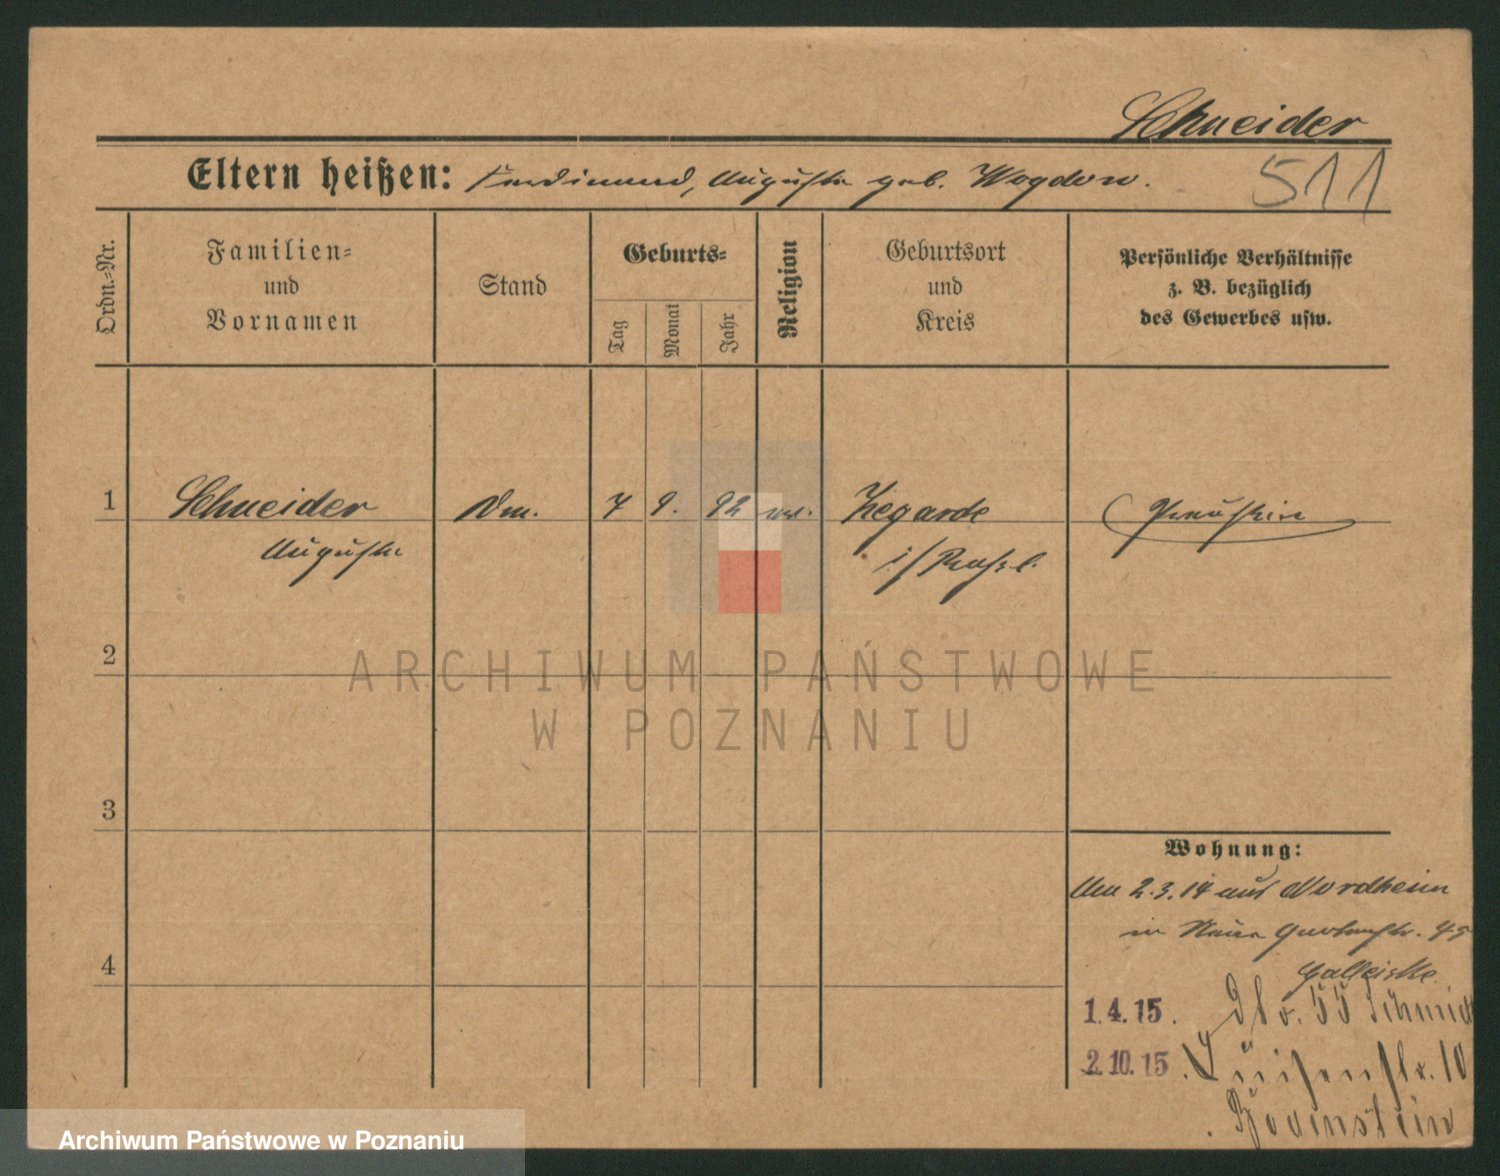 Schneider
511
Eltern heißen: Ferdinand, Auguste geb. Wogdow.
Ordn.-Nr.
Familien-
und
Vornamen
Stand
Geburts-
Tag
Monat
Jahr
Religion
Geburtsort
und
Kreis
Persönliche Verhältnisse
z. B. bezüglich
des Gewerbes usw.
1 Schneider 7 9. 92 Zegarde Preußin
Auguste
2
ARCHIWUM PAŃSTWOWE
W POZNANIU
3
Wohnung:
2.3.14 aus Nordheim
in 45
4
1.4.15. 55 Schmidt
2.10.15. Luisenstr. 10
Bovenstein
Archiwum Państwowe w Poznaniu